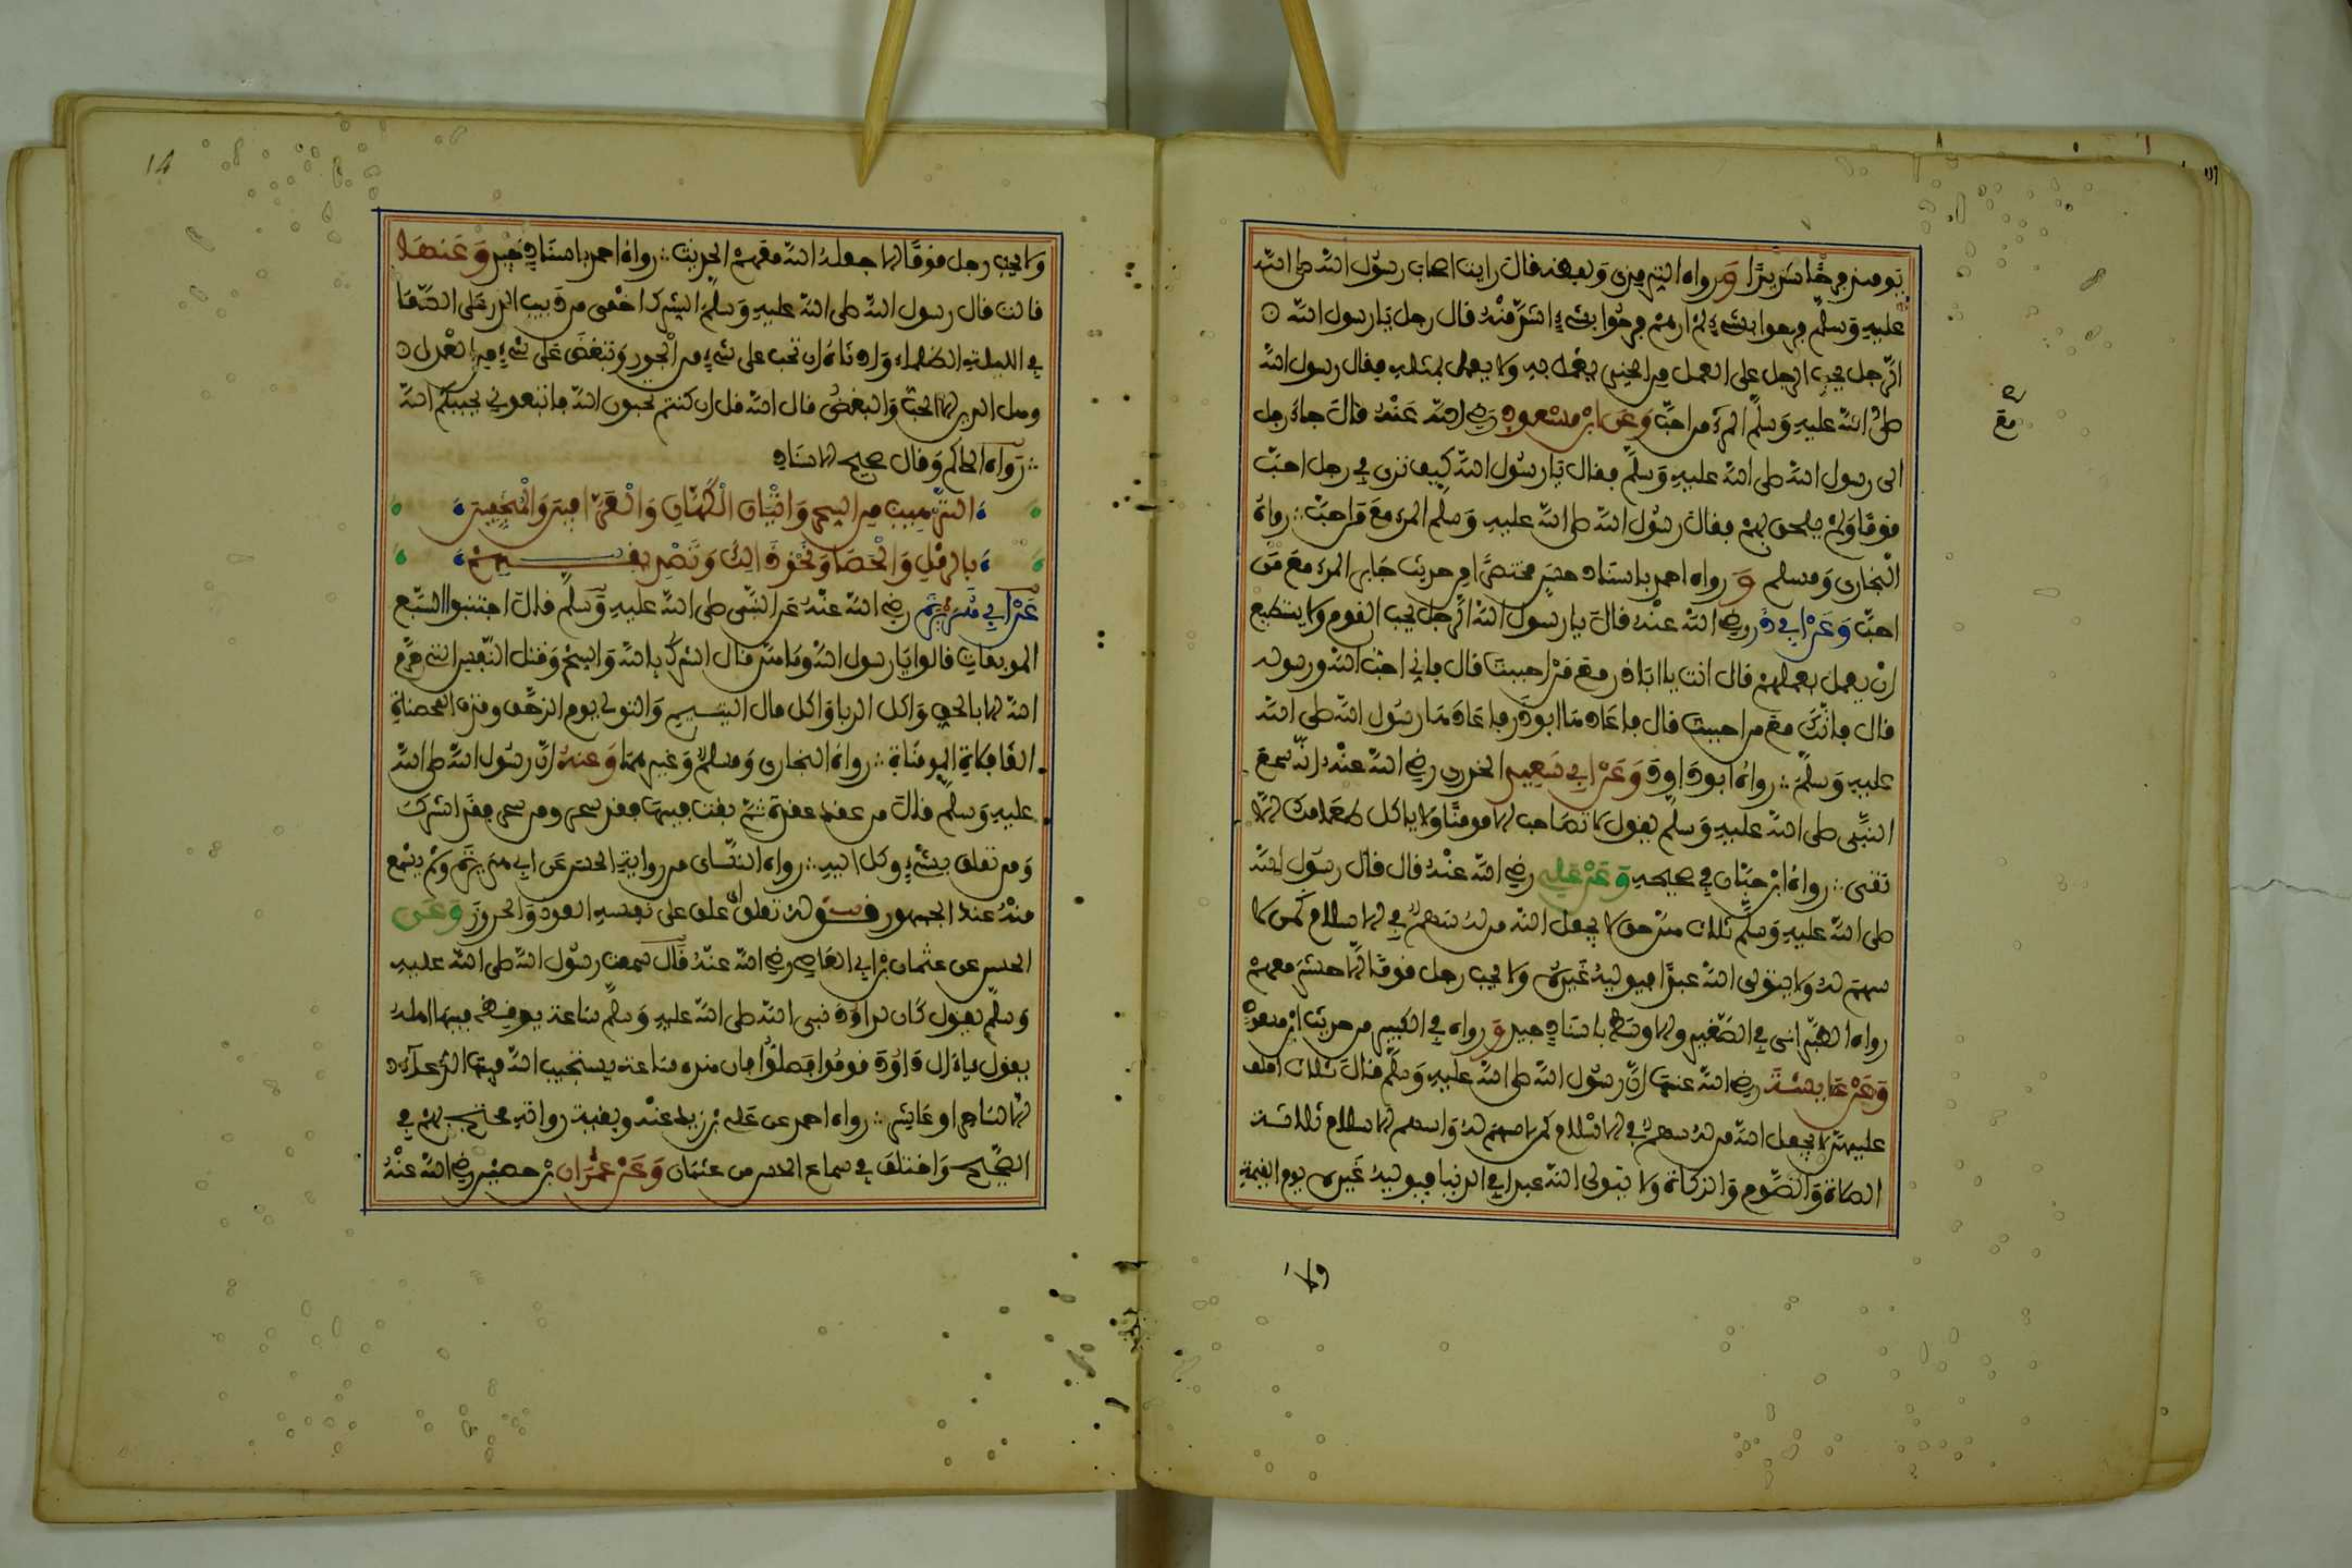 يومئذ فرحا شديدا ورواه الترمذي ولفظه قال رايت اصحاب رسول الله صلى الله
عليه وسلم فرحوا بشيء لم ارهم فرحوا بشيء اشد منه قال رجل يا رسول الله
الرجل يحب الرجل على العمل من الخير يعمل به ولا يعمل بمثله فقال رسول الله
صلى الله عليه وسلم المرء من احب وعن ابن مسعود رضي الله عنه قال جاء رجل
مع
الى رسول الله صلى الله عليه وسلم فقال يا رسول الله كيف ترى في رجل احب
قوما ولم يلحق بهم فقال رسول الله صلى الله عليه وسلم المرء مع من احب رواه
البخاري ومسلم ورواه احمد باسناد حسن مختصرا من حديث جابر المرء مع من
احب وعن ابي ذر رضي الله عنه قال يا رسول الله الرجل يحب القوم ولا يستطيع
ان يعمل بعملهم قال انت يا ابا ذر مع من احببت قال فاني احب الله ورسوله
قال فانك مع من احببت قال فاعادها ابو ذر فاعادها رسول الله صلى الله
عليه وسلم رواه ابو داود وعن ابي سعيد الخدري رضي الله عنه انه سمع
النبي صلى الله عليه وسلم يقول لا تصاحب الا مومنا ولا ياكل طعامك الا
تقي رواه ابن حبان في صحيحه وعن علي رضي الله عنه قال قال رسول الله
صلى الله عليه وسلم ثلاث هن حق لا يجعل الله من له سهم في الاسلام كمن لا
سهم له ولا يتولى الله عبدا فيوليه غيره ولا يحب رجل قوما الا حشر معهم
رواه الطبراني في الصغير والاوسط باسناد جيد ورواه في الكبير من حديث ابن مسعود
وعن عايشة رضي الله عنها ان رسول الله صلى الله عليه وسلم قال ثلاث احلف
عليهن لا يجعل الله من له سهم في الاسلام كمن لا سهم له واسهم الاسلام ثلاثة
الصلاة والصوم والزكاة ولا يتولى الله عبدا في الدنيا فيوليه غيره يوم القيمة
ولا
14
ولا يحب رجل قوما الا جعله الله معهم الحديث رواه احمد باسناد جيد وعنها
قالت قال رسول الله صلى الله عليه وسلم الشرك اخفى من دبيب الذر على الصفا
في الليلة الظلماء وادناه ان تحب على شيء من الجور وتبغض على شيء من العدل
وهل الدين الا الحب والبغض قال الله قل ان كنتم تحبون الله فاتبعوني يحببكم الله
رواه الحاكم وقال صحيح الاسناد
الترهيب من السحر واتيان الكهان والعرافين والمنجمين
بالرمل والحصا ونحو ذلك وتصديقهم
عن ابي هريرة رضي الله عنه عن النبي صلى الله عليه وسلم قال اجتنبوا السبع
الموبقات قالوا يا رسول الله وما هن قال الشرك بالله والسحر وقتل النفس التي حرم
الله الا بالحق واكل الربا واكل مال اليتيم والتولي يوم الزحف وقذف المحصنات
الغافلات المومنات رواه البخاري ومسلم وغيرهما وعنه ان رسول الله صلى الله
عليه وسلم قال من عقد عقدة ثم نفث فيها فقد سحر ومن سحر فقد اشرك
ومن تعلق بشيء وكل اليه رواه النساي من رواية الحسن عن ابي هريرة ولم يسمع
منه عند الجمهور قوله تعلق اي علق على نفسه العوذ والحروز وعن
الحسن عن عثمان بن ابي العاص رضي الله عنه قال سمعت رسول الله صلى الله عليه
وسلم يقول كان لداود نبي الله صلى الله عليه وسلم ساعة يوقظ فيها اهله
يقول يا ال داود قوموا فصلوا فان هذه ساعة يستجيب الله فيها الدعاء
الا لساحر او عاشر رواه احمد عن علي بن زيد عنه وبقية رواته محتج بهم في
الصحيح واختلف في سماع الحسن من عثمان وعن عمران بن حصين رضي الله عنه